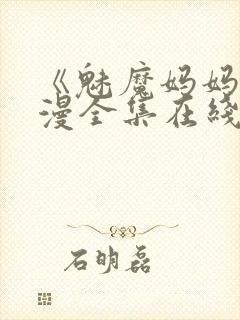 《魅魔妈妈
漫全集在线
石明磊